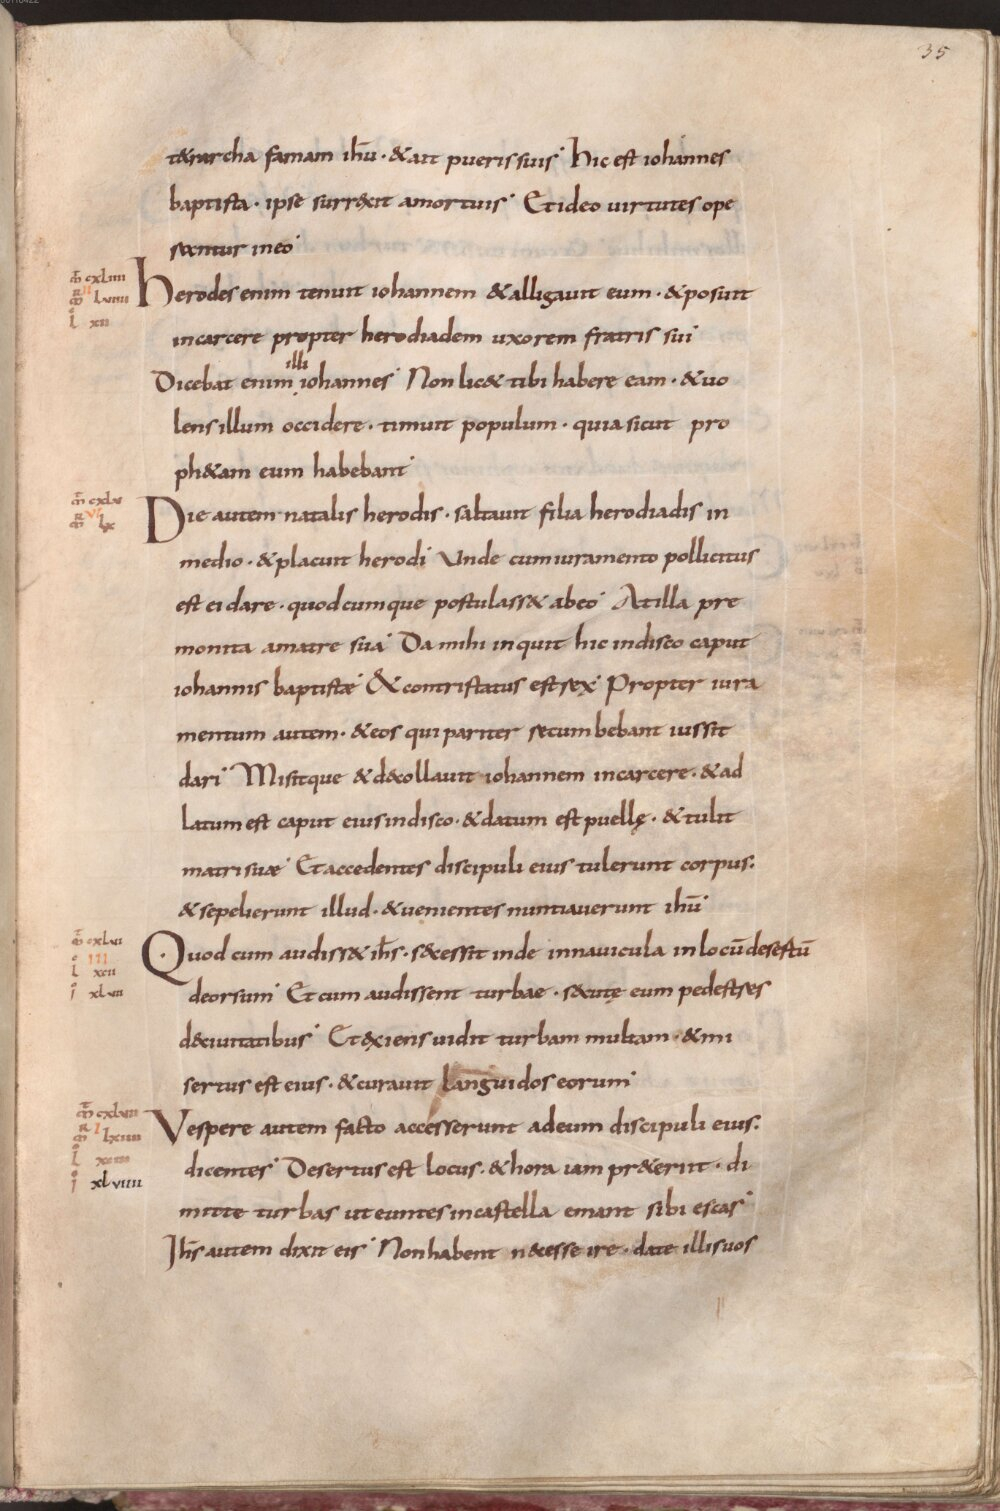 35
t&rarcha famam ihū · & ait pueris suis Hic est iohannes
baptista · ipse surrexit amortuis Et ideo uirtutes ope
rantur in eo
m̄ cxLiiii
R II
m̄ Lviiii
L xii
herodes enim tenuit iohannem & alligauit eum · & posuit
incarcere propter herodiadem uxorem fratris sui
illi
Dicebat enim iohannes Non lic& tibi habere eam · & uo
lens illum occidere · timuit populum · quia sicut pro
ph&am eum habebant
m̄ cxLv
R VI
m̄ Lx
Die autem natalis herodis · saltauit filia herodiadis in
medio · & placuit herodi Unde cum iuramento pollicitus
est ei dare · quodcumque postulass& abeo At illa pre
monita amatre sua Da mihi inquit hic indisco caput
iohannis baptistæ & contristatus est rex Propter iura
mentum autem · & eos qui pariter recumbebant iussit
dari Misitque & decollauit iohannem incarcere · & ad
latum est caput eius indisco · & datum est puellę · & tulit
matri suæ Et accedentes discipuli eius tulerunt corpus:
& sepelierunt illud · & uenientes nuntiauerunt ihū
m̄ cxLvi
III
L xcii
I xLvii
Quod cum audiss& ihs · secessit inde innauicula in locū desertū
deorsum Et cum audissent turbae · secutę eum pedestres
deciuitatibus Et exiens uidit turbam multam · & mi
sertus est eius · & curauit languidos eorum
m̄ cxLvii
R I
m̄ Lxiiii
L xciii
I xLviiii
Vespere autem facto accesserunt adeum discipuli eius:
dicentes Desertus est locus · & hora iam pr&eriit · di
mitte turbas ut euntes incastella emant sibi escas
Ihs autem dixit eis Non habent necesse ire · date illis uos